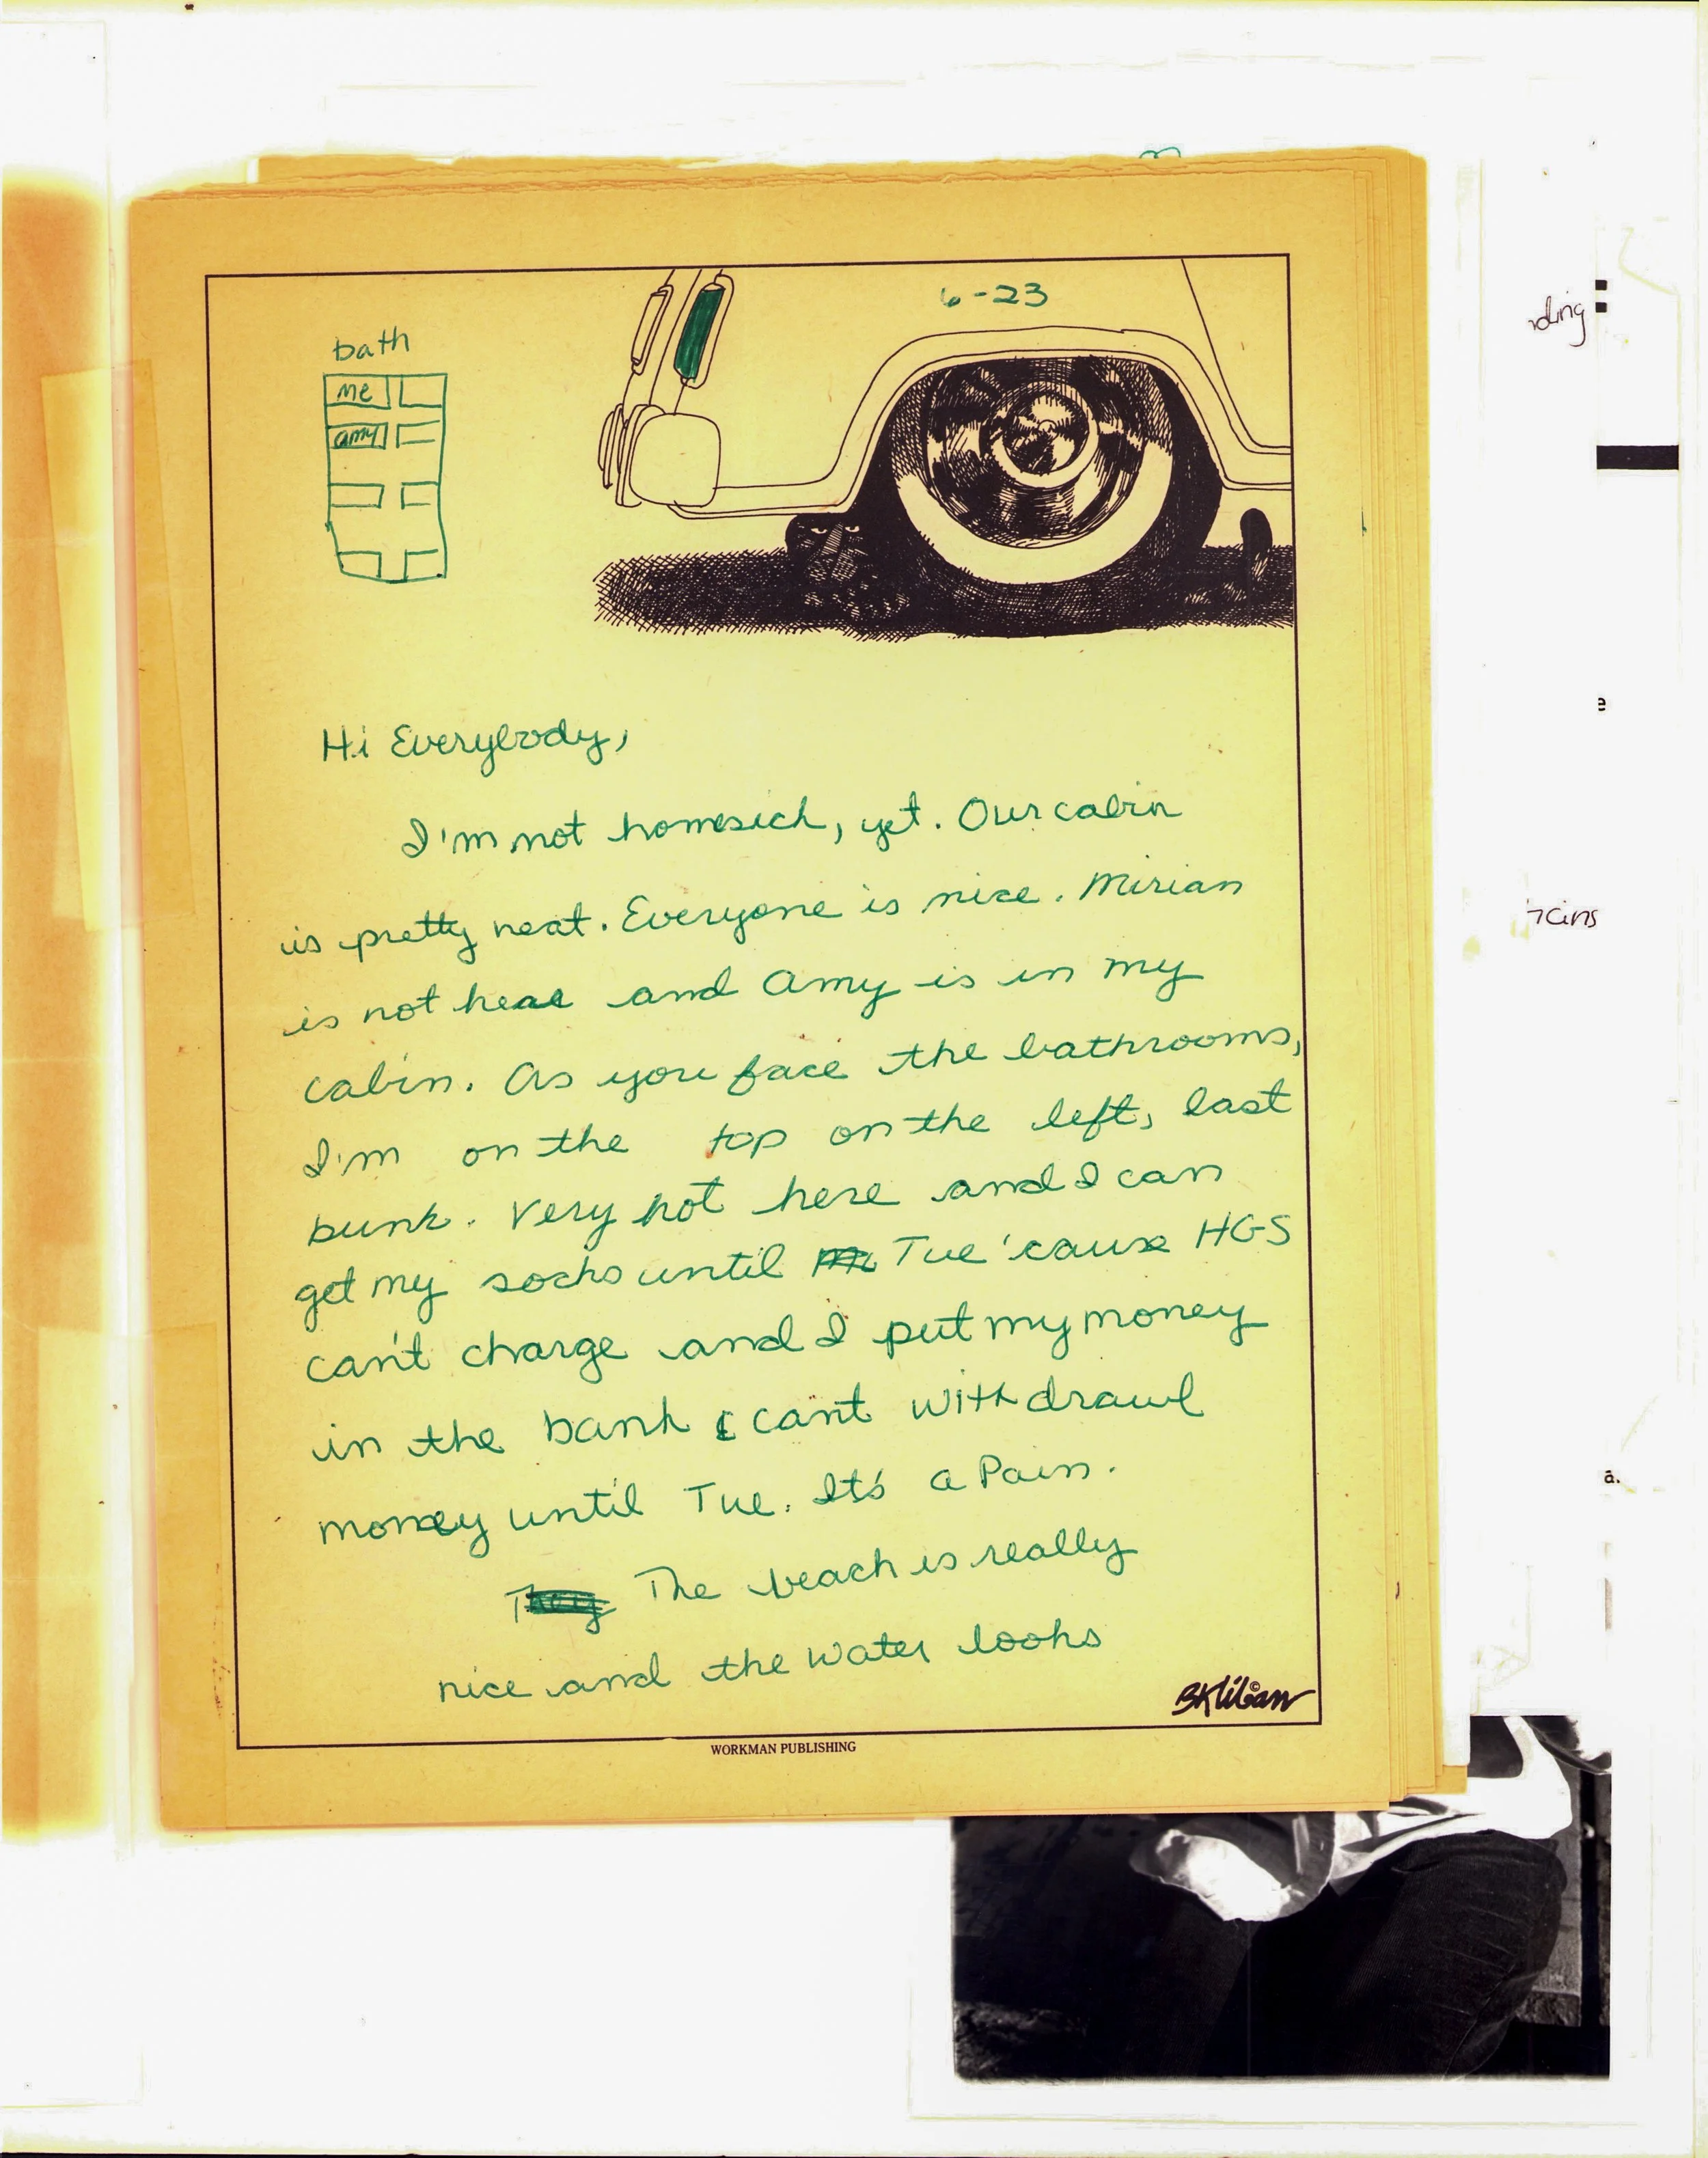 6-23
bath
me
amy
Hi Everybody,
I'm not homesick, yet. Our cabin
is pretty neat. Everyone is nice. Mirian
is not here and Amy is in my
cabin. As you face the bathrooms,
I'm on the top on the left, last
bunk. Very hot here and I can
get my socks until Tue 'cause HGS
can't charge and I put my money
in the bank & can't withdrawl
money until Tue. It's a Pain.
They The beach is really
nice and the water looks
BKliban
WORKMAN PUBLISHING